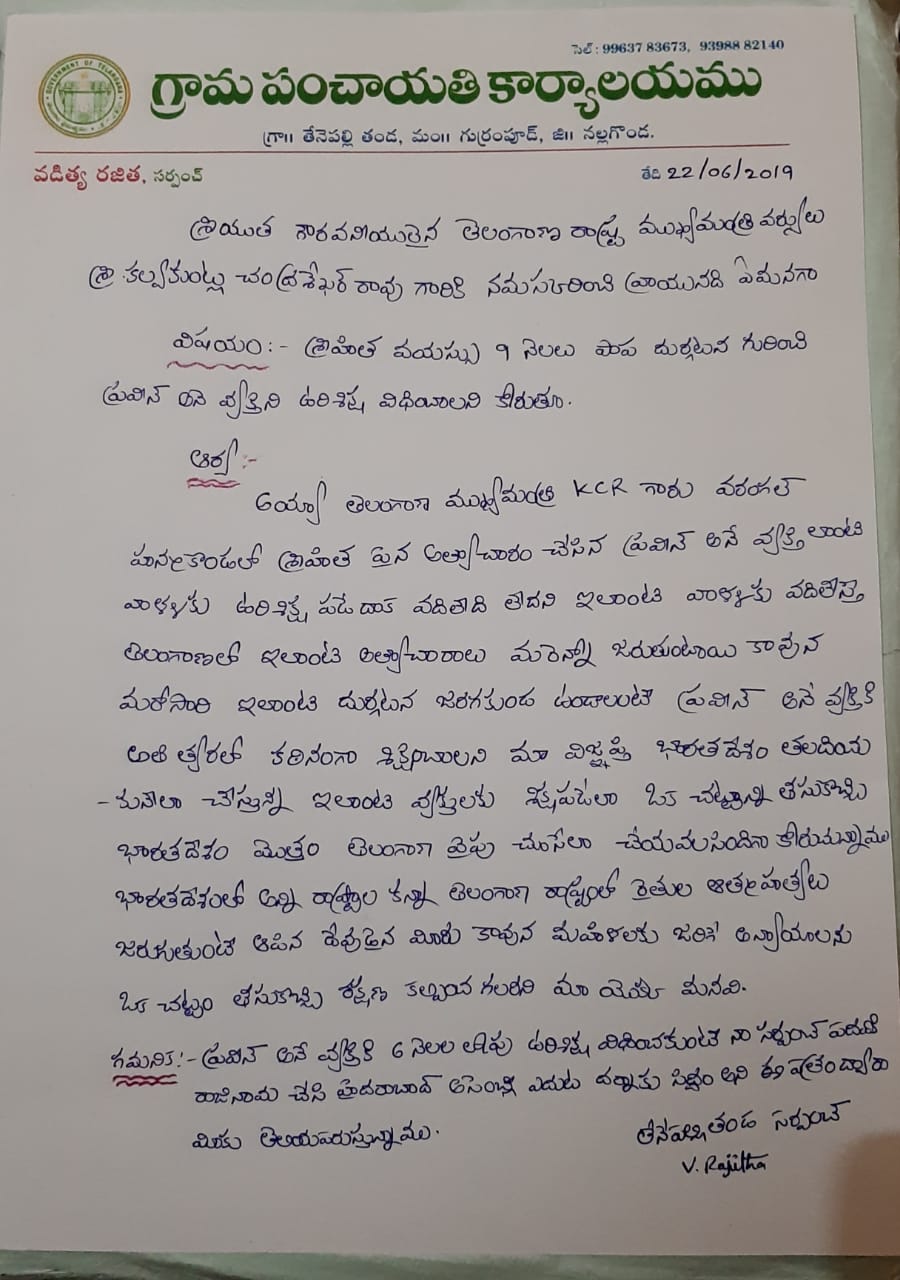 సెల్ : 99637 83673, 93988 82140
GOVERNMENT OF TELANGANA
గ్రామ పంచాయతి కార్యాలయము
గ్రా॥ తేనెపల్లి తండ, మం॥ గుర్రంపూడ్, జి॥ నల్లగొండ.
వడిత్య రజిత, సర్పంచ్
తేది 22/06/2019
శ్రీయుత గౌరవనీయులైన తెలంగాణ రాష్ట్ర ముఖ్యమంత్రి వర్యులు
శ్రీ కల్వకుంట్ల చంద్రశేఖర్ రావు గారికి నమస్కరించి వ్రాయునది ఏమనగా
విషయం:- శ్రీహిత వయస్సు 9 నెలలు పాప దుర్ఘటన గురించి
ప్రవీన్ అనే వ్యక్తిని ఉరిశిక్ష విధించాలని కోరుతూ.
ఆర్య:-
అయ్యా తెలంగాణ ముఖ్యమంత్రి KCR గారు వరంగల్
హన్మకొండలో శ్రీహిత పైన అత్యాచారం చేసిన ప్రవీన్ అనే వ్యక్తి లాంటి
వాళ్ళకు ఉరిశిక్ష పడే దాక వదిలేది లేదని ఇలాంటి వాళ్ళకు వదిలేస్తే
తెలంగాణలో ఇలాంటి అత్యాచారాలు మరెన్నో జరుతుంటాయి కావున
మరోసారి ఇలాంటి దుర్ఘటన జరగకుండ ఉండాలంటే ప్రవీన్ అనే వ్యక్తికి
అతి త్వరలో కఠినంగా శిక్షించాలని మా విజ్ఞప్తి భారతదేశం తలదించు
-కునేలా చేస్తున్న ఇలాంటి వ్యక్తులకు శిక్షపడేలా ఒక చట్టాన్ని తీసుకొచ్చి
భారతదేశం మొత్తం తెలంగాణ వైపు చూసేలా చేయవలసిందిగా కోరుచున్నాము
భారతదేశంలో అన్ని రాష్ట్రాల కన్నా తెలంగాణ రాష్ట్రంలో రైతుల ఆత్మహత్యలు
జరుగుతుంటే ఆపిన దేవుడైన మీరు కావున మహిళలకు జరిగే అన్యాయాలను
ఒక చట్టం తీసుకొచ్చి రక్షణ కల్పించ గలరని మా యొక్క మనవి.
గమనిక:- ప్రవీన్ అనే వ్యక్తికి 6 నెలల లోపు ఉరిశిక్ష విధించకుంటే నా సర్పంచ్ పదవికి
రాజీనామ చేసి హైదరాబాద్ అసెంబ్లీ ఎదుట ధర్నాకు సిద్ధం అని ఈ పత్రం ద్వారా
మీకు తెలియపరుస్తున్నాము.
తేనేపల్లి తండ సర్పంచ్
V. Rajitha